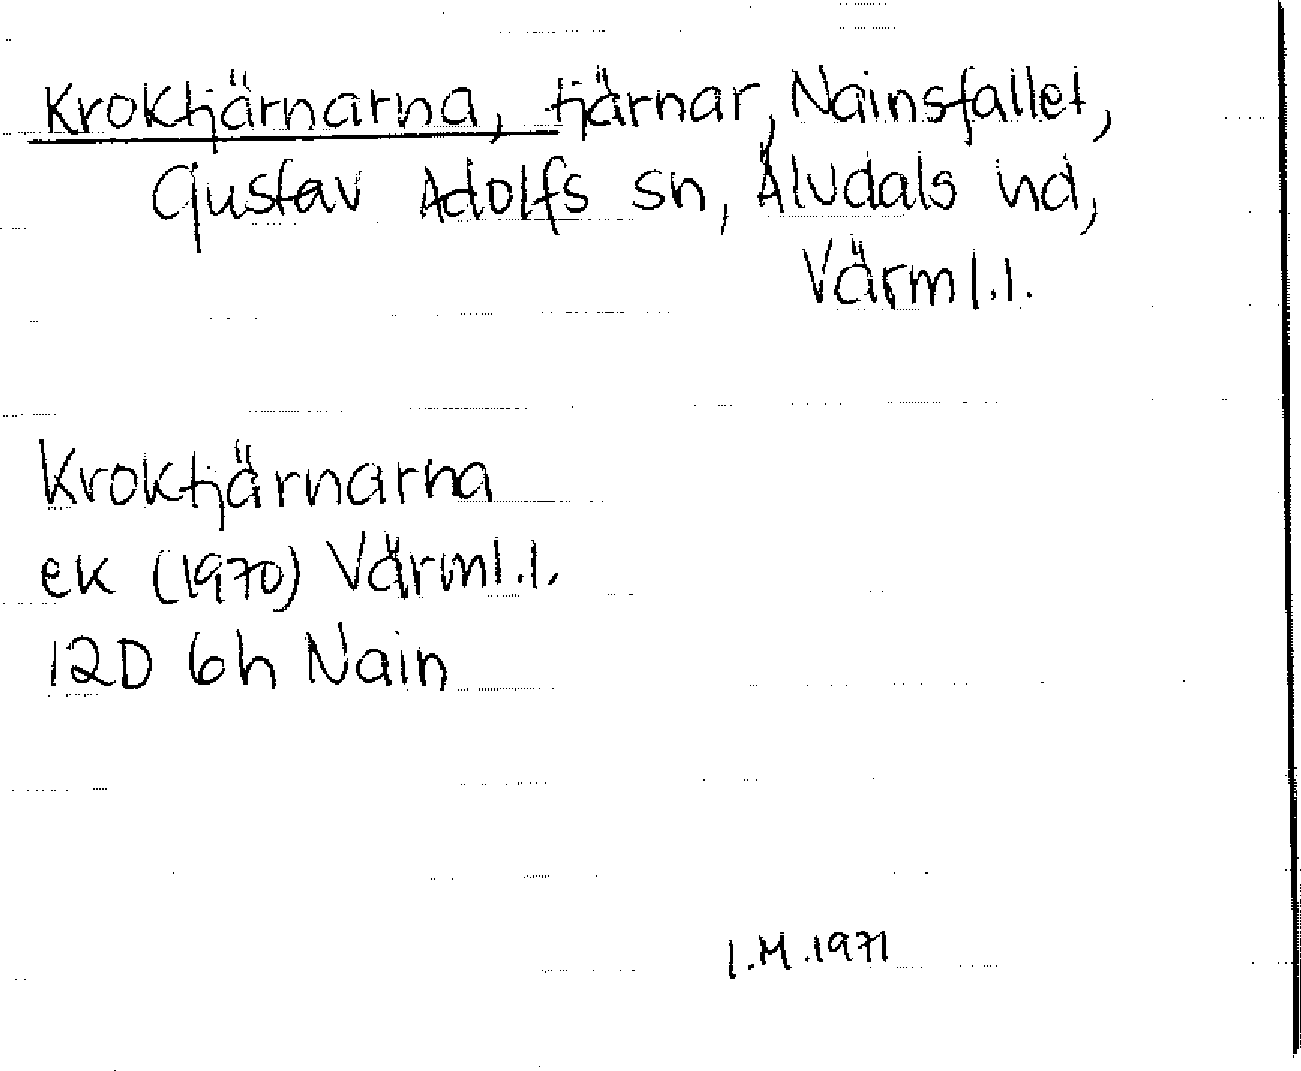 Kroktjärnarna, tjärnar, Nainsfallet,
Gustav Adolfs sn, Älvdals hd,
Värml.l.
Kroktjärnarna
ek (1970) Värml.l.
12D 6h Nain
I.M.1971